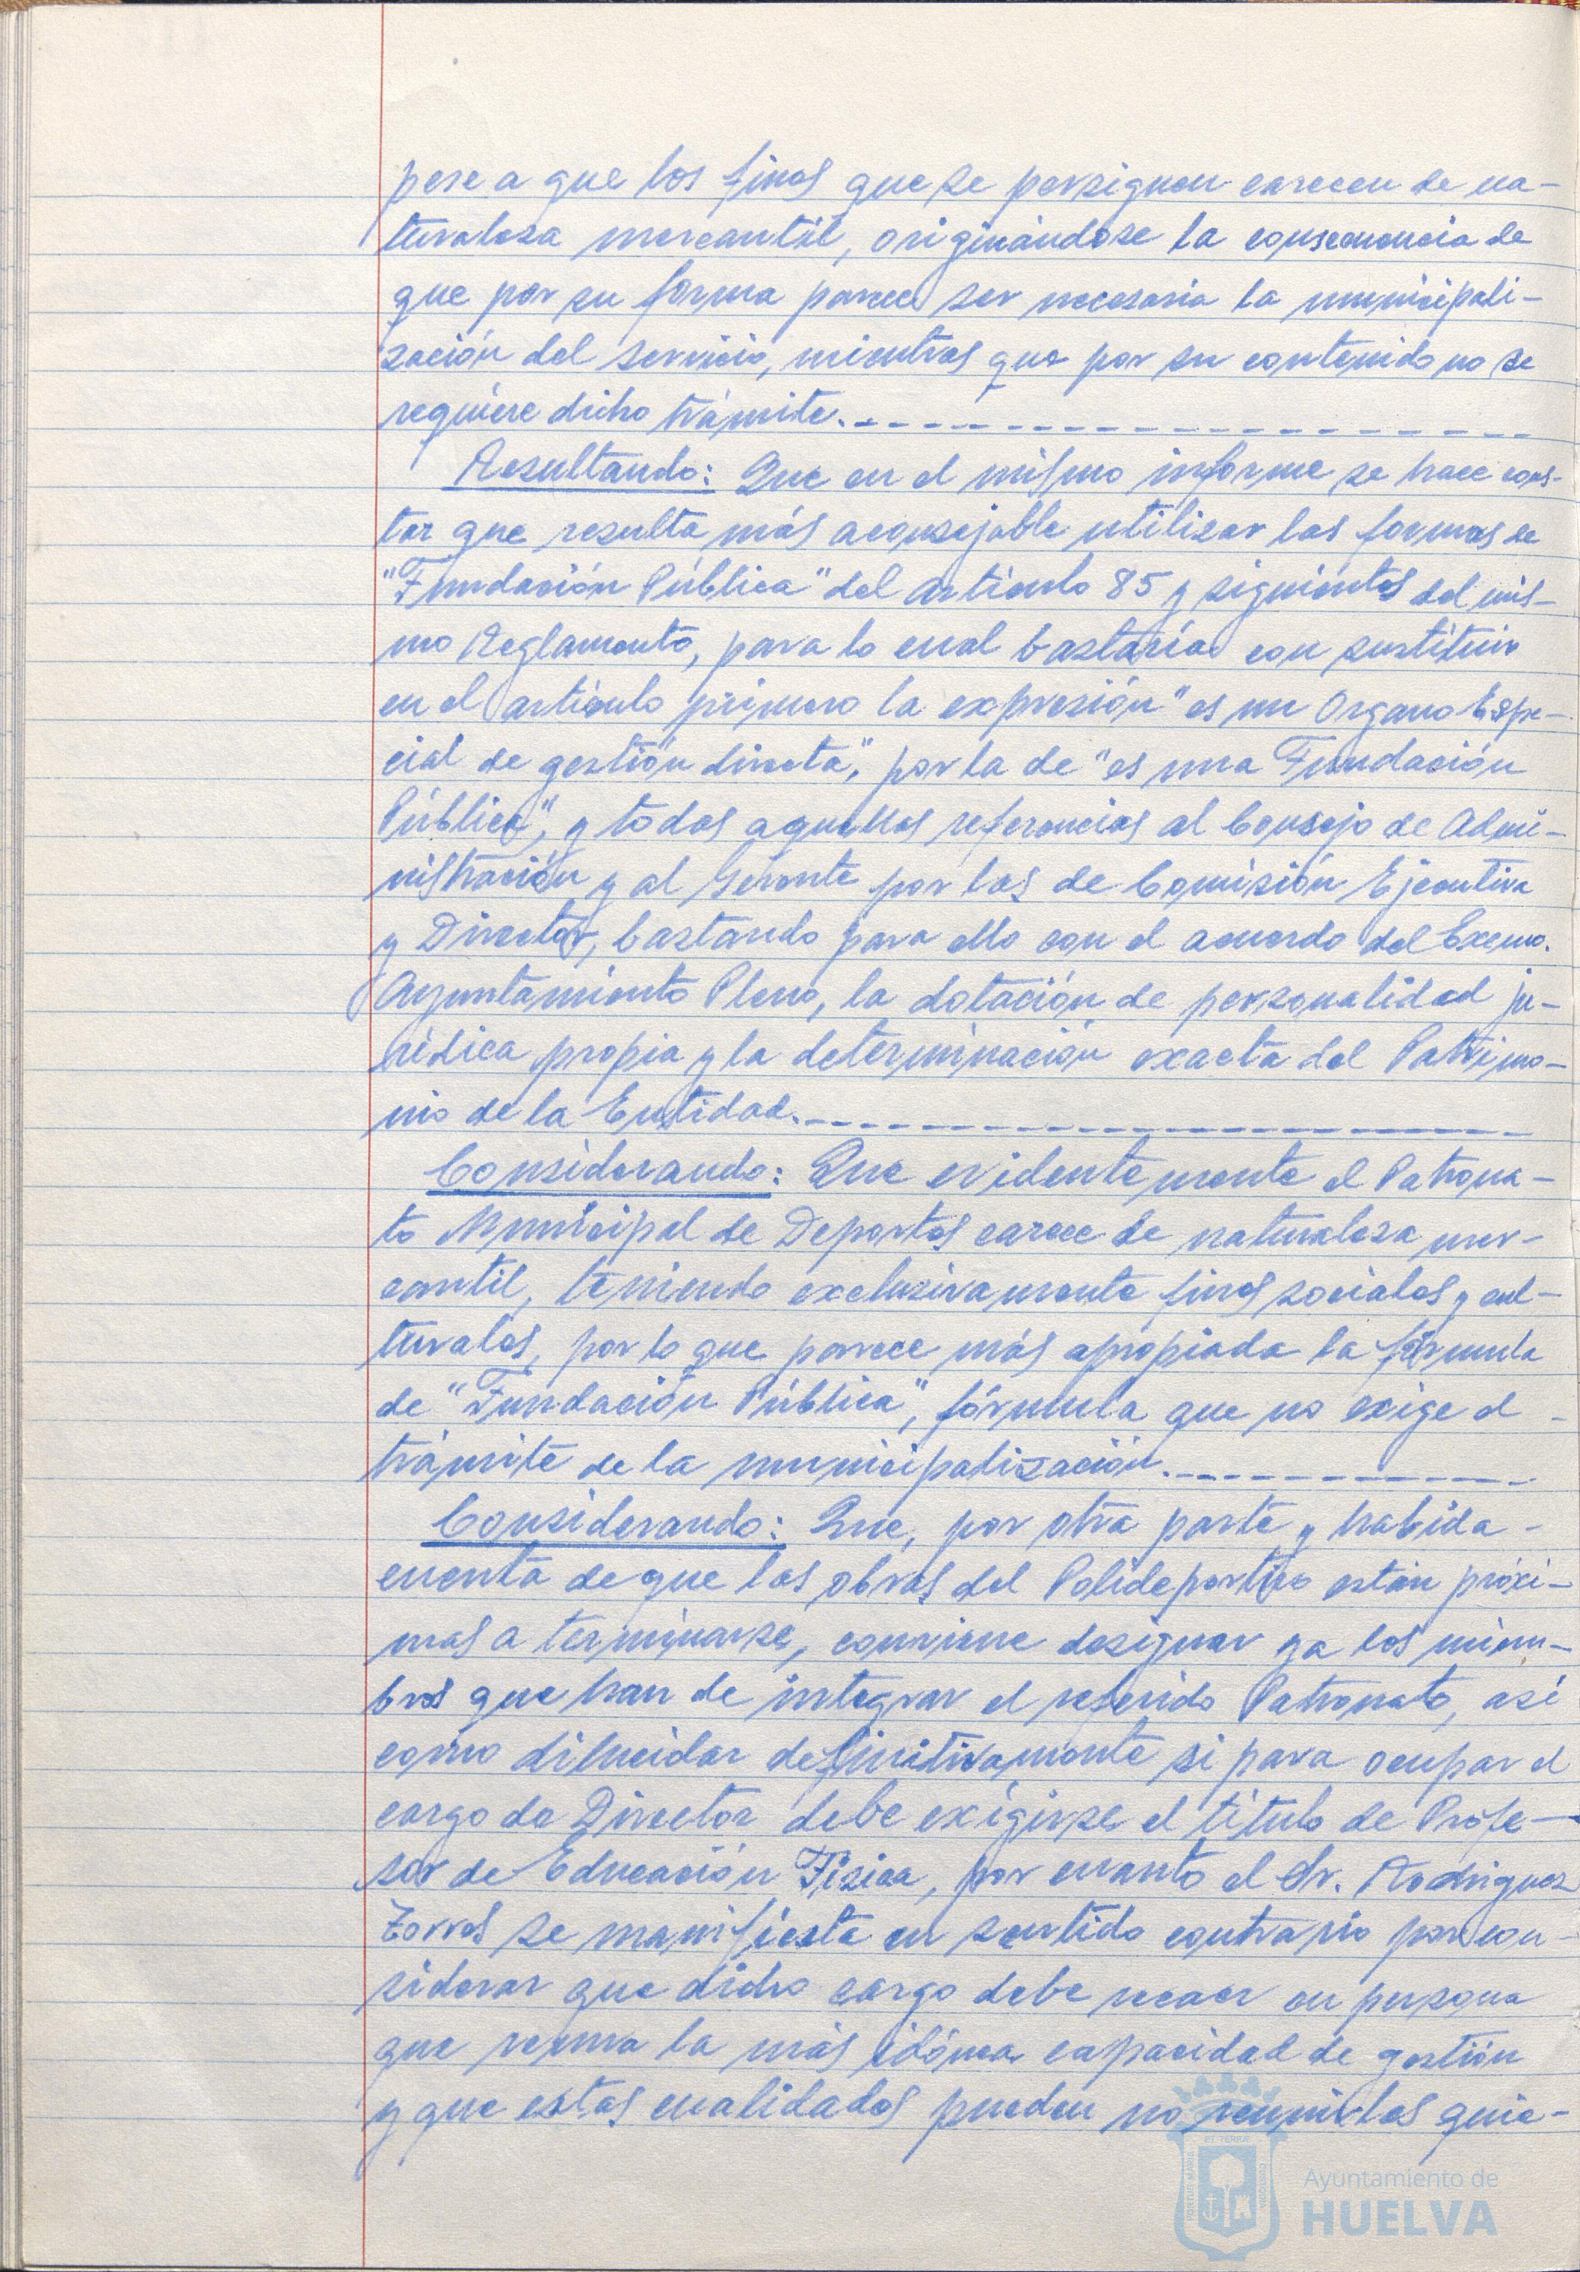 pese a que los fines que se persiguen carecen de na-
turaleza mercantil, originándose la consecuencia de
que por su forma parece ser necesaria la municipali-
zación del servicio, mientras que por su contenido no se
requiere dicho trámite.
Resultando: Que en el mismo informe se hace cons-
tar que resulta más aconsejable utilizar las formas de
"Fundación Pública" del artículo 85 y siguientes del mis-
mo Reglamento, para lo cual bastaría con sustituir
en el artículo primero la expresión "es un Organo Espe-
cial de gestión directa", por la de "es una Fundación
Pública", y todas aquellas referencias al Consejo de Admi-
nistración y al Gerente por las de Comisión Ejecutiva
y Director, bastando para ello con el acuerdo del Excmo.
Ayuntamiento Pleno, la dotación de personalidad ju-
rídica propia y la determinación exacta del Patrimo-
nio de la Entidad.
Considerando: Que evidentemente el Patrona-
to Municipal de Deportes carece de naturaleza mer-
cantil, teniendo exclusivamente fines sociales y cul-
turales, por lo que parece más apropiada la fórmula
de "Fundación Pública", fórmula que no exige el
trámite de la municipalización.
Considerando: Que, por otra parte y habida
cuenta de que las obras del Polideportivo están próxi-
mas a terminarse, conviene designar ya los miem-
bros que han de integrar el referido Patronato, así
como dilucidar definitivamente si para ocupar el
cargo de Director debe exigirse el título de Profe-
sor de Educación Física, por cuanto el Sr. Rodriguez
Torres se manifiesta en sentido contrario por con-
siderar que dicho cargo debe recaer en persona
que reuna la más idónea capacidad de gestión
y que estas cualidades pueden no reunirlas quie-
Ayuntamiento de
HUELVA